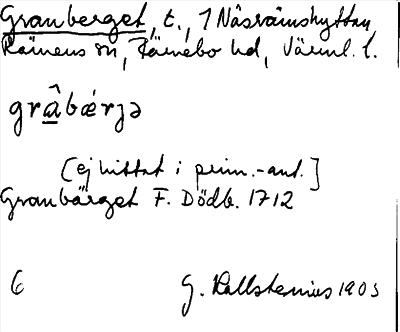 Granberget, t., 1 Näsrämshyttan,
Rämens sn, Färnebo hd, Värml. l.
grâbǽrjə
[ej hittat i prim.-ant.]
Granbärget F. Dödb. 1712
6 G. Kallstenius 1903